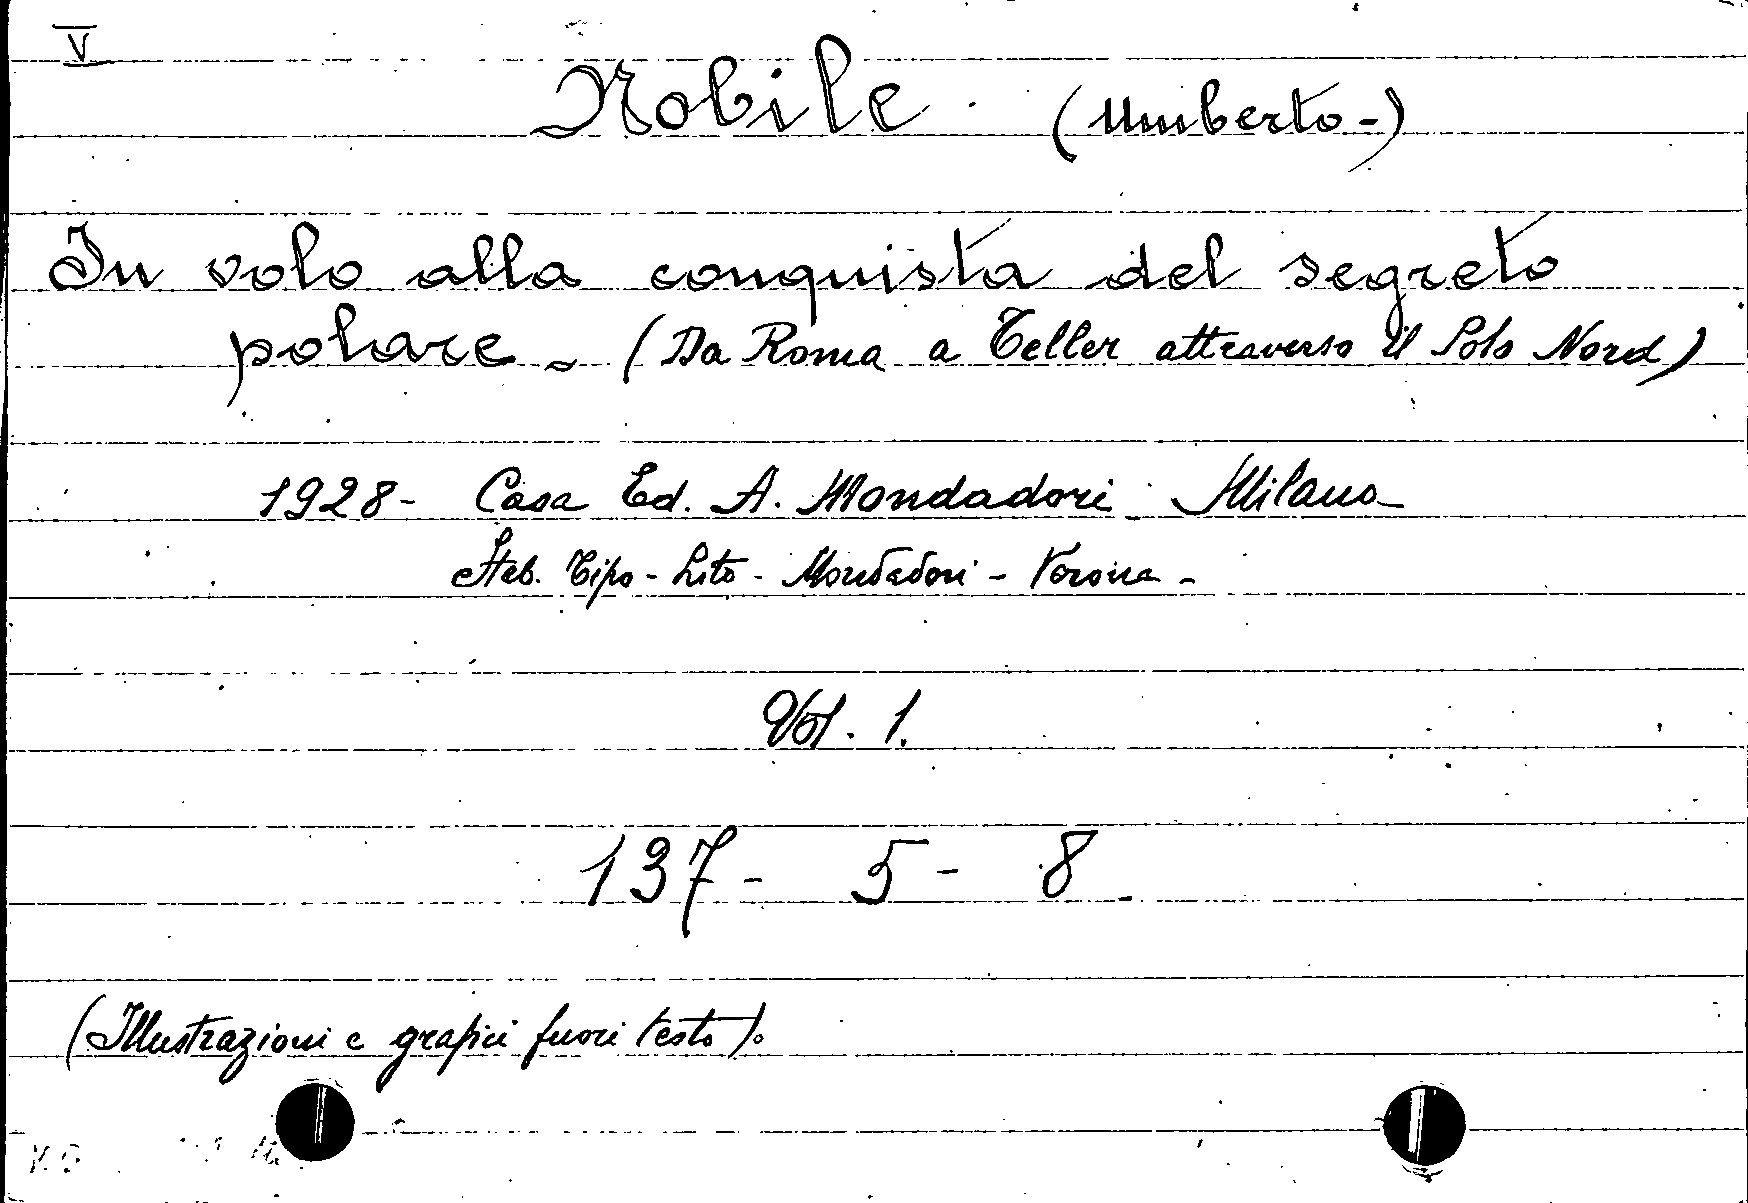 V
Nobile. (Umberto-)
In volo alla conquista del segreto
polare - (Da Roma a Teller attraverso il Polo Nord)
1928- Casa Ed. A. Mondadori - Milano
Stab. Tipo-Lito - Mondadori - Verona -
Vol. 1.
137- 5- 8
(Illustrazioni e grafici fuori testo).